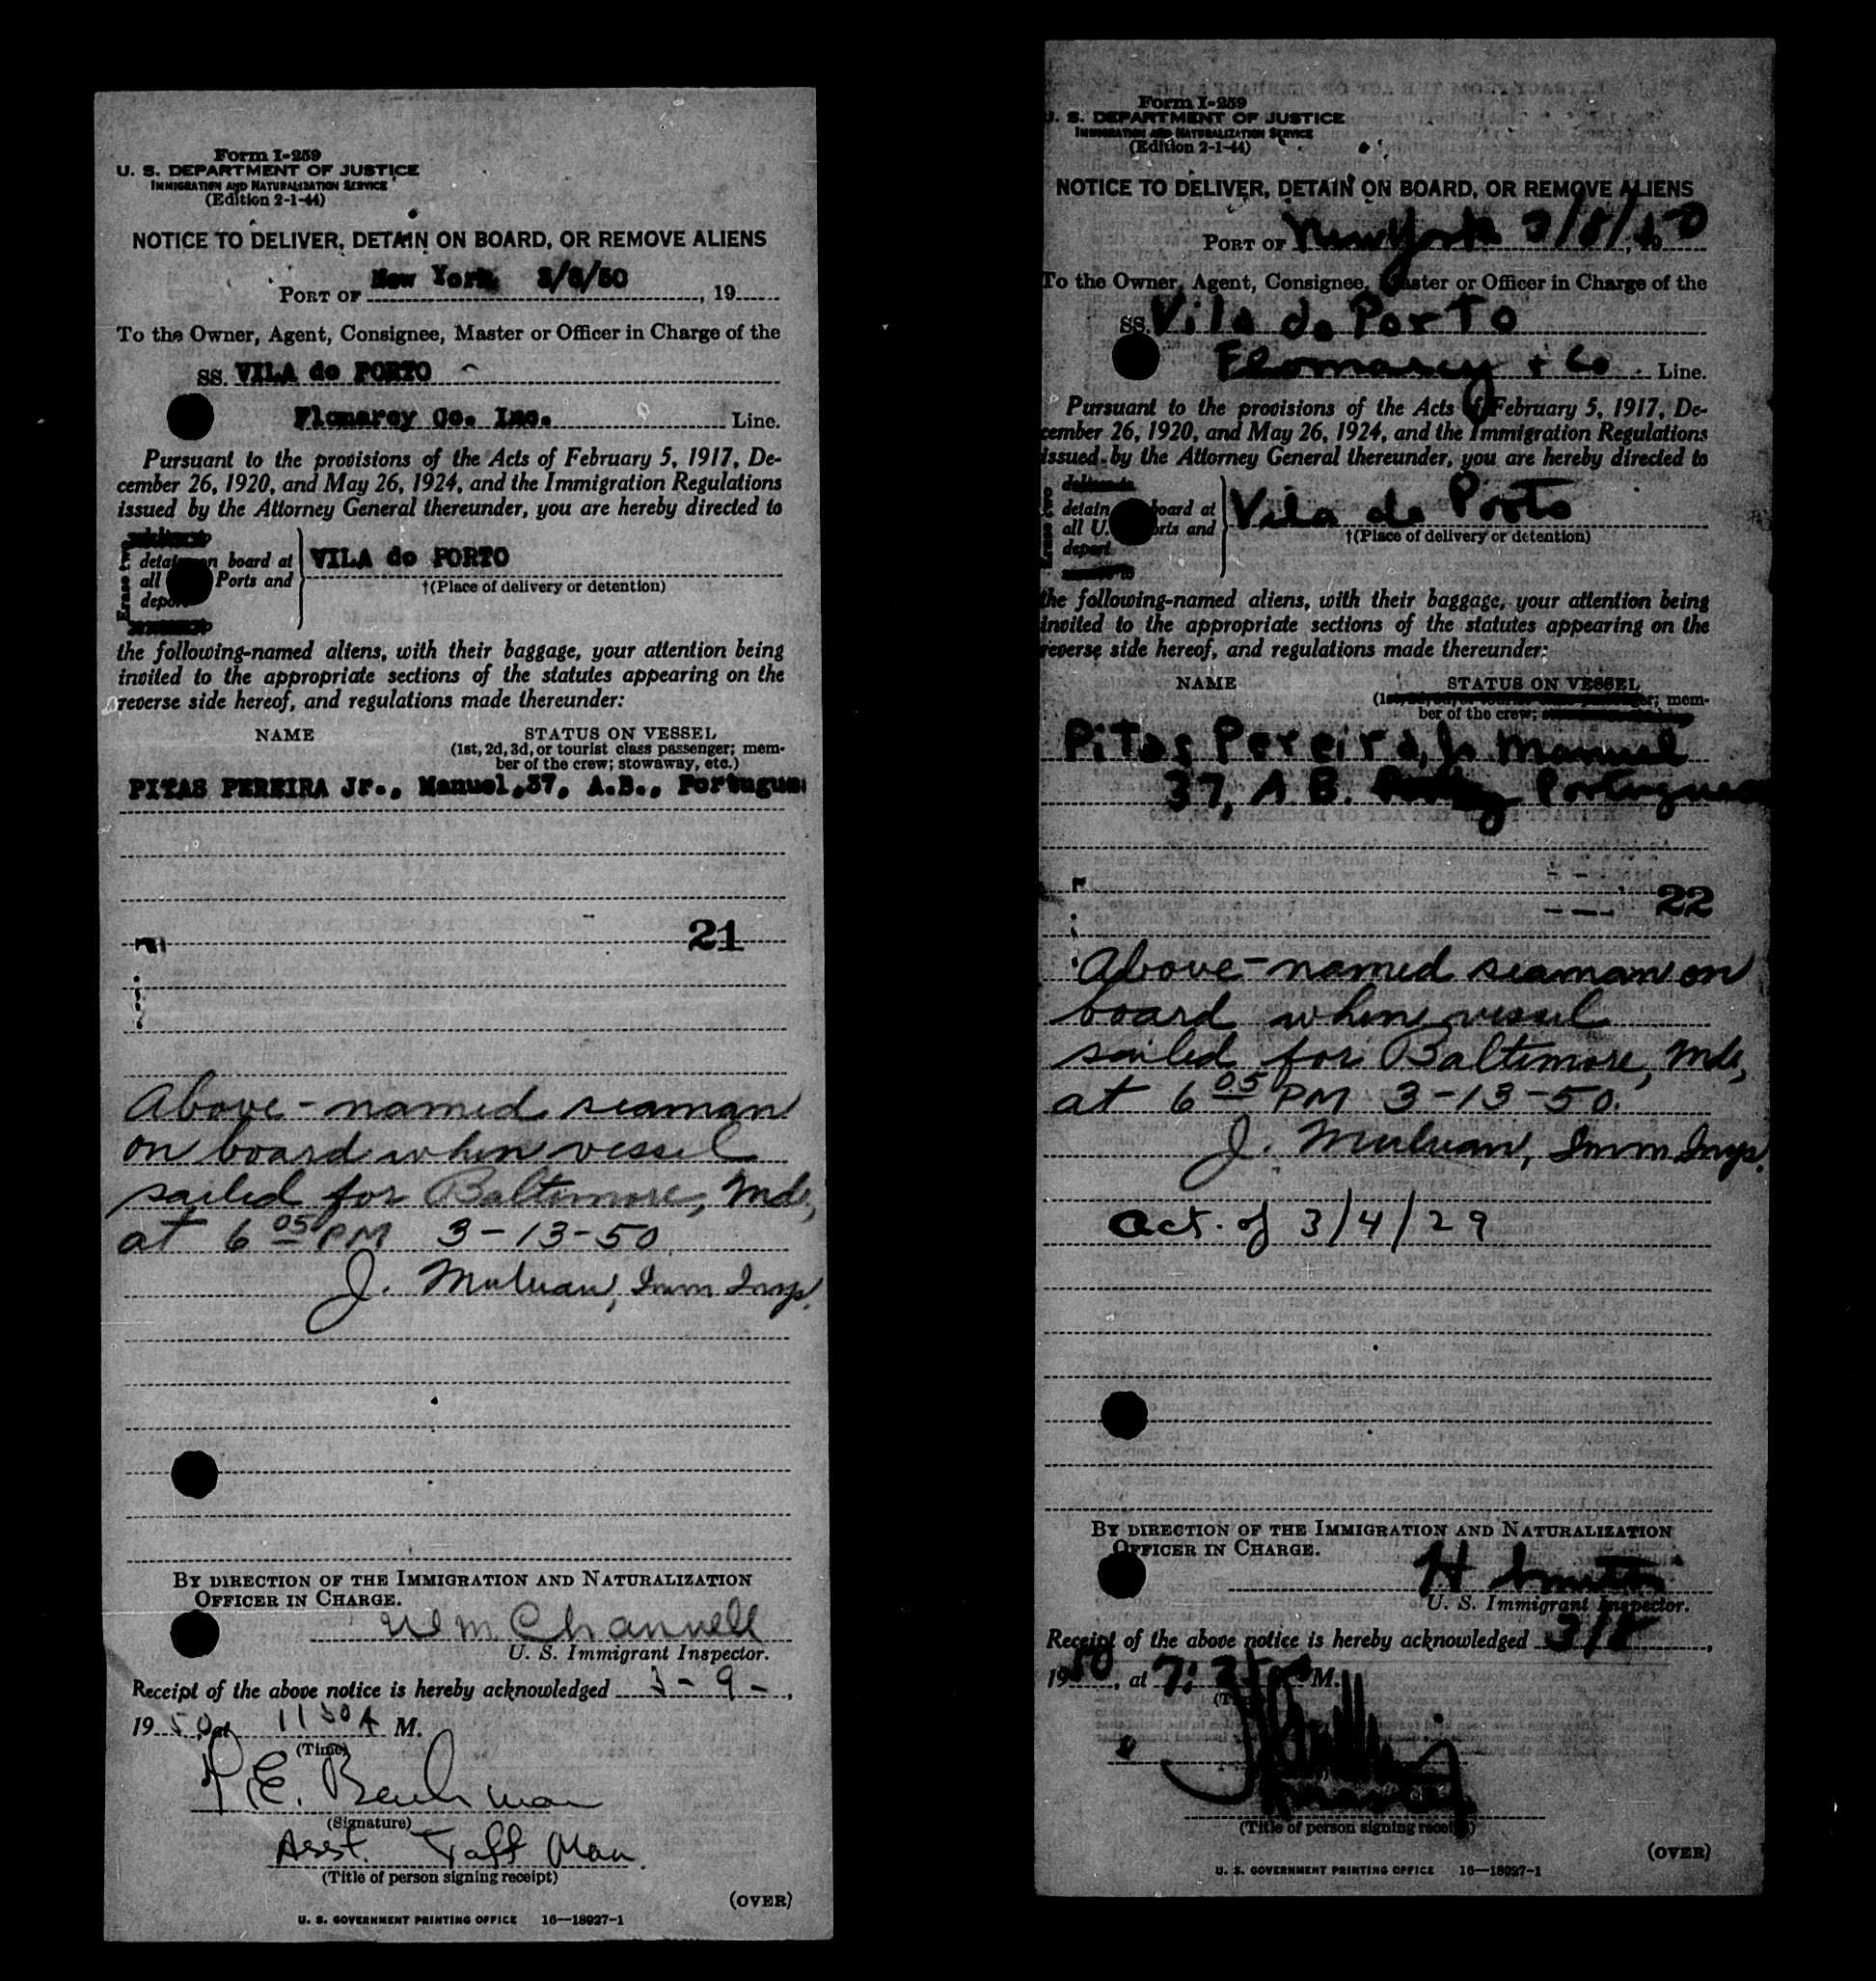 Form I-259
U. S. DEPARTMENT OF JUSTICE
IMMIGRATION AND NATURALIZATION SERVICE
(Edition 2-1-44)
NOTICE TO DELIVER, DETAIN ON BOARD, OR REMOVE ALIENS
PORT OF New York 3/8/50, 19
To the Owner, Agent, Consignee, Master or Officer in Charge of the
SS. VILA do PORTO
Flomarcy Co. Inc. Line.
Pursuant to the provisions of the Acts of February 5, 1917, De-
cember 26, 1920, and May 26, 1924, and the Immigration Regulations
issued by the Attorney General thereunder, you are hereby directed to
Erase two
detain on board at
all Ports and
deport
VILA do PORTO
†(Place of delivery or detention)
the following-named aliens, with their baggage, your attention being
invited to the appropriate sections of the statutes appearing on the
reverse side hereof, and regulations made thereunder:
NAME STATUS ON VESSEL
(1st, 2d, 3d, or tourist class passenger; mem-
ber of the crew; stowaway, etc.)
PITAS PEREIRA Jr., Manuel, 37, A.B., Portugues
21
Above-named seaman
on board when vessel
sailed for Baltimore, Md,
at 6 05 PM 3-13-50
J. Muluan, Imm Insp.
BY DIRECTION OF THE IMMIGRATION AND NATURALIZATION
OFFICER IN CHARGE.
Wm Channell
U. S. Immigrant Inspector.
Receipt of the above notice is hereby acknowledged 3-9-,
1950, at 1130A M.
(Time)
E.
(Signature)
Asst. Taff Man.
(Title of person signing receipt)
(OVER)
U. S. GOVERNMENT PRINTING OFFICE 16—18927-1
Form I-259
U. S. DEPARTMENT OF JUSTICE
IMMIGRATION AND NATURALIZATION SERVICE
(Edition 2-1-44)
NOTICE TO DELIVER, DETAIN ON BOARD, OR REMOVE ALIENS
PORT OF New York 3/8/, 1950
To the Owner, Agent, Consignee, Master or Officer in Charge of the
SS. Vila do Porto
Flomarcy + Co Line.
Pursuant to the provisions of the Acts of February 5, 1917, De-
cember 26, 1920, and May 26, 1924, and the Immigration Regulations
issued by the Attorney General thereunder, you are hereby directed to
detain board at
all U. Ports and
deport
Vila do Porto
†(Place of delivery or detention)
the following-named aliens, with their baggage, your attention being
invited to the appropriate sections of the statutes appearing on the
reverse side hereof, and regulations made thereunder:
NAME STATUS ON VESSEL
mem-
ber of the crew;
Pitas Pereira, Jr Manuel
37, A.B. Portuguese
22
Above-named seaman on
board when vessel
sailed for Baltimore, Md,
at 6 05 PM 3-13-50.
J. Muluan, Imm Insp.
Act. of 3/4/29
BY DIRECTION OF THE IMMIGRATION AND NATURALIZATION
OFFICER IN CHARGE.
H Smith
U. S. Immigrant Inspector.
Receipt of the above notice is hereby acknowledged 3/8,
1950, at M.
(Title of person signing receipt)
(OVER)
U. S. GOVERNMENT PRINTING OFFICE 16—18927-1